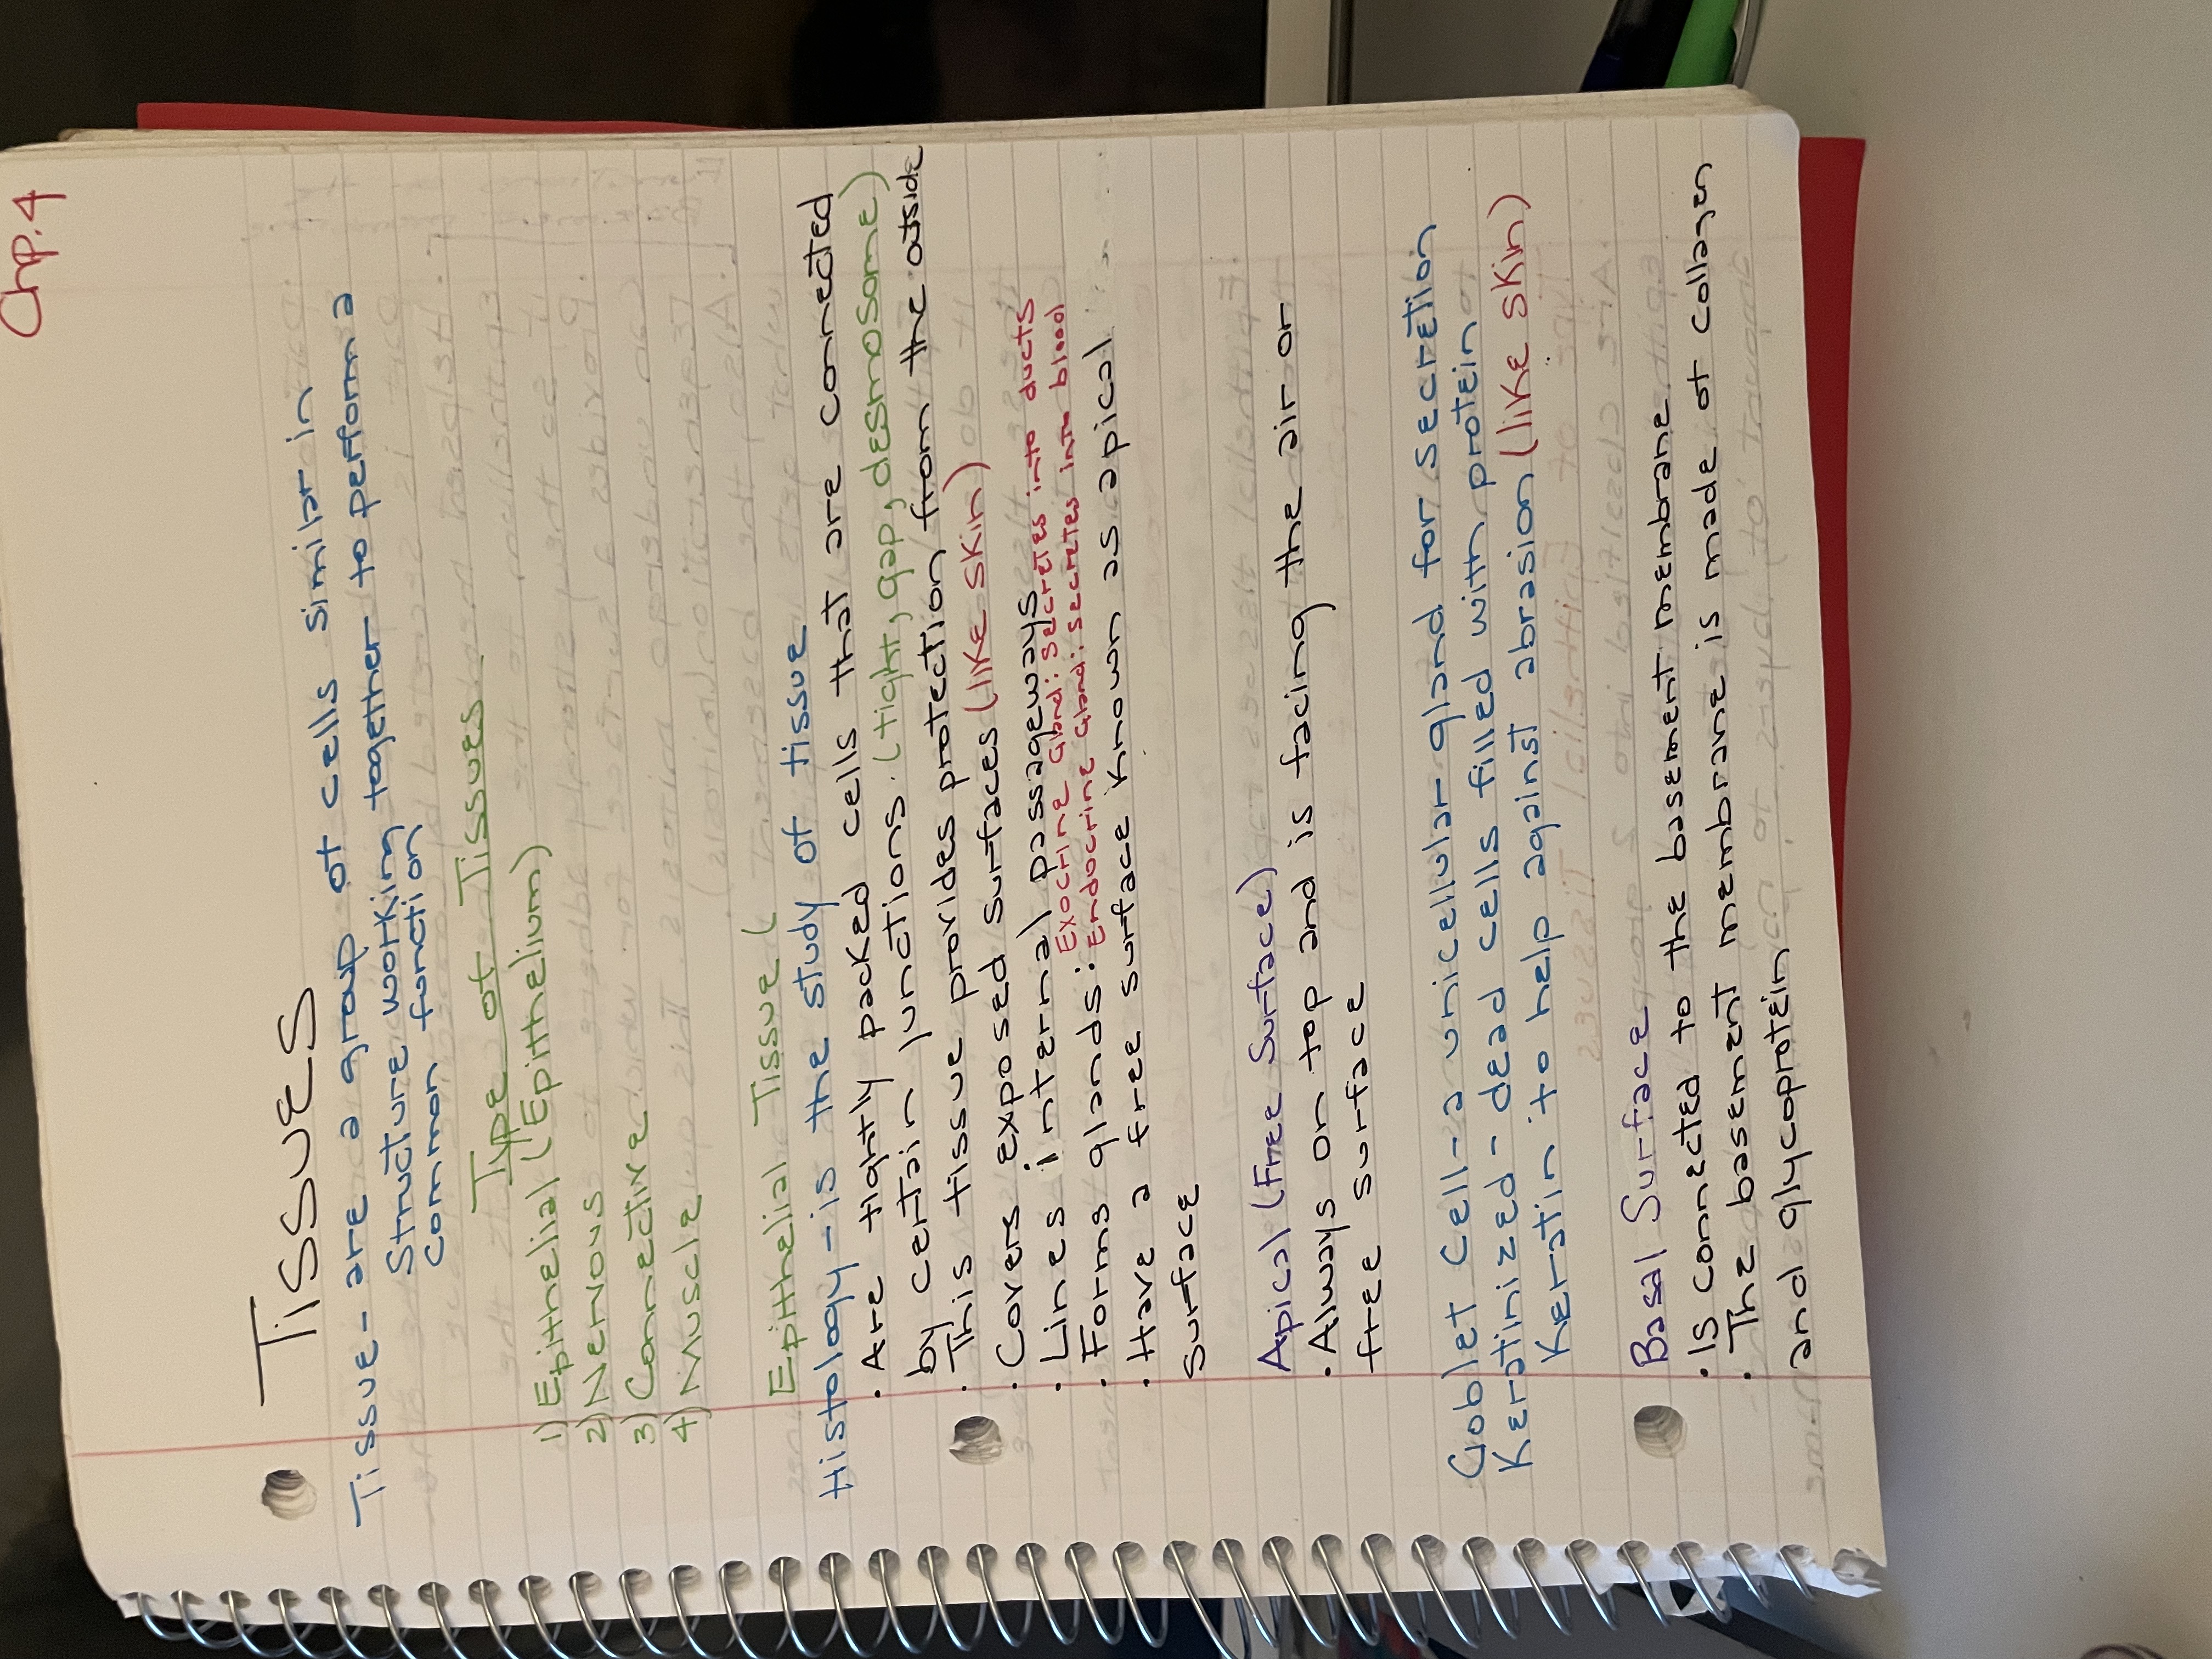 Chp. 4
Tissues
Tissue - are a group of cells similar in
structure working together to perform a
common function
Type of Tissues
1) Epithelial (Epithelium)
2) Nervous
3) Connective
4) Muscle
Epithelial Tissue (
Histology - is the study of tissue
• Are tightly packed cells that are connected
by certain junctions. (tight, gap, desmosome)
• This tissue provides protection from the outside
• Covers exposed surfaces (like skin)
• Lines internal passageways
Exocrine Gland: secretes into ducts
• Forms glands: Endocrine Gland: secretes into blood
• Have a free surface known as apical
surface
Apical (Free Surface)
• Always on top and is facing the air or
free surface
Goblet Cell - a unicellular gland for secretion
Keratinized - dead cells filled with protein
Keratin to help against abrasion (like skin)
Basal Surface
• Is connected to the basement membrane
• The basement membrane is made of collagen
and glycoprotein